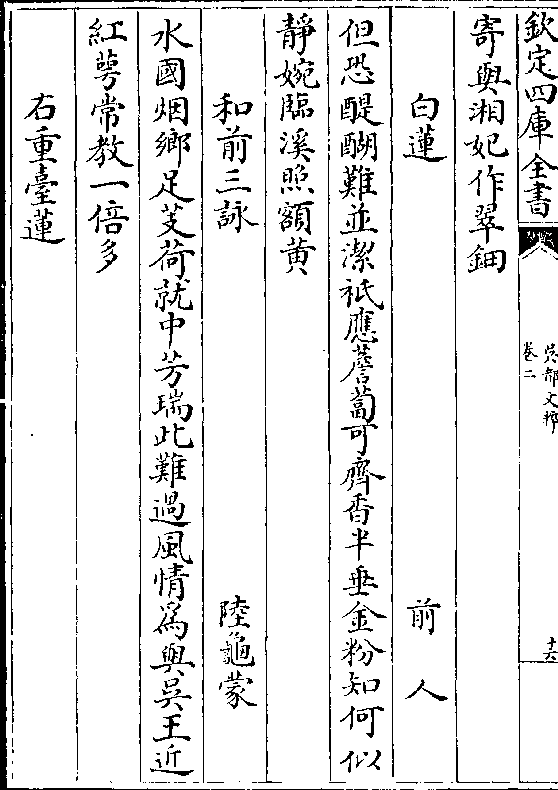 欽定四庫全書
吳都文粹
卷二
十六
寄與湘妃作翠鈿
白蓮 前人
但恐醍醐難並潔祇應薝蔔可齊香半垂金粉知何似
靜婉臨溪照額黃
和前三詠 陸龜蒙
水國烟鄉足芰荷就中芳瑞此難過風情為與吳王近
紅萼常教一倍多
右重臺蓮